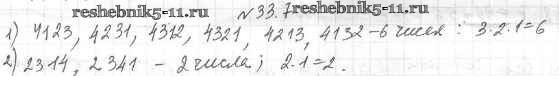 reshebnik5-11.ru
reshebnik5-11.ru
№33.7
1) 4123, 4231, 4312, 4321, 4213, 4132 – 6 чисел : 3·2·1=6
2) 2314, 2341 – 2 числа; 2·1=2.